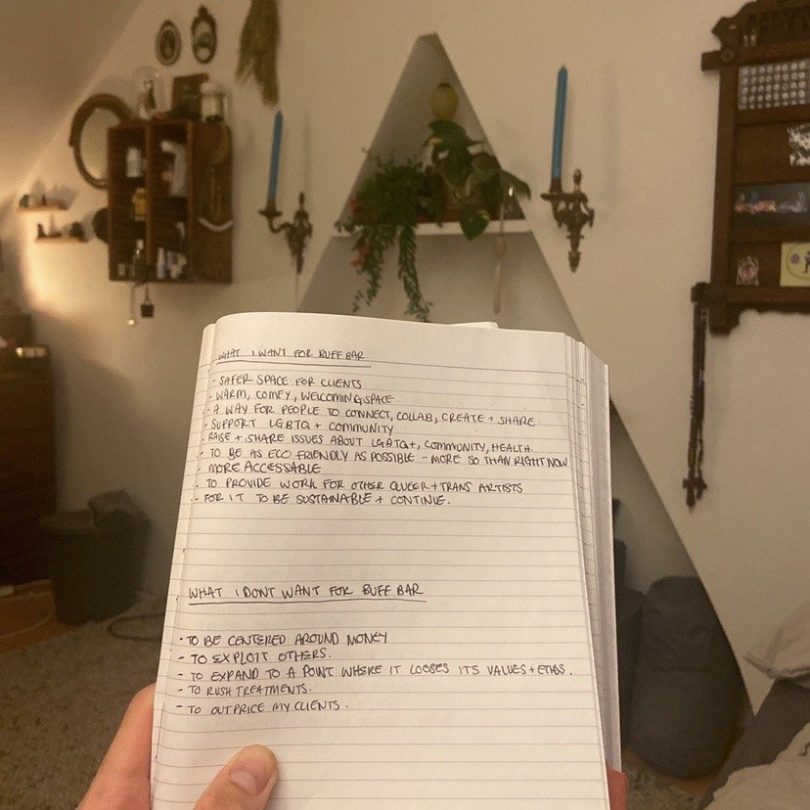 WHAT I WANT FOR BUFF BAR
- SAFER SPACE FOR CLIENTS
- WARM, COMFY, WELCOMING SPACE.
- A WAY FOR PEOPLE TO CONNECT, COLLAB, CREATE + SHARE.
- SUPPORT LGBTQ + COMMUNITY
- RAISE + SHARE ISSUES ABOUT LGBTQ+, COMMUNITY, HEALTH.
- TO BE AS ECO FRIENDLY AS POSSIBLE - MORE SO THAN RIGHT NOW
- MORE ACCESSABLE
- TO PROVIDE WORK FOR OTHER QUEER + TRANS ARTISTS
- FOR IT TO BE SUSTAINABLE + CONTINUE.
WHAT I DONT WANT FOR BUFF BAR
- TO BE CENTERED AROUND MONEY
- TO EXPLOIT OTHERS.
- TO EXPAND TO A POINT WHERE IT LOOSES ITS VALUES + ETHOS.
- TO RUSH TREATMENTS.
- TO OUTPRICE MY CLIENTS.